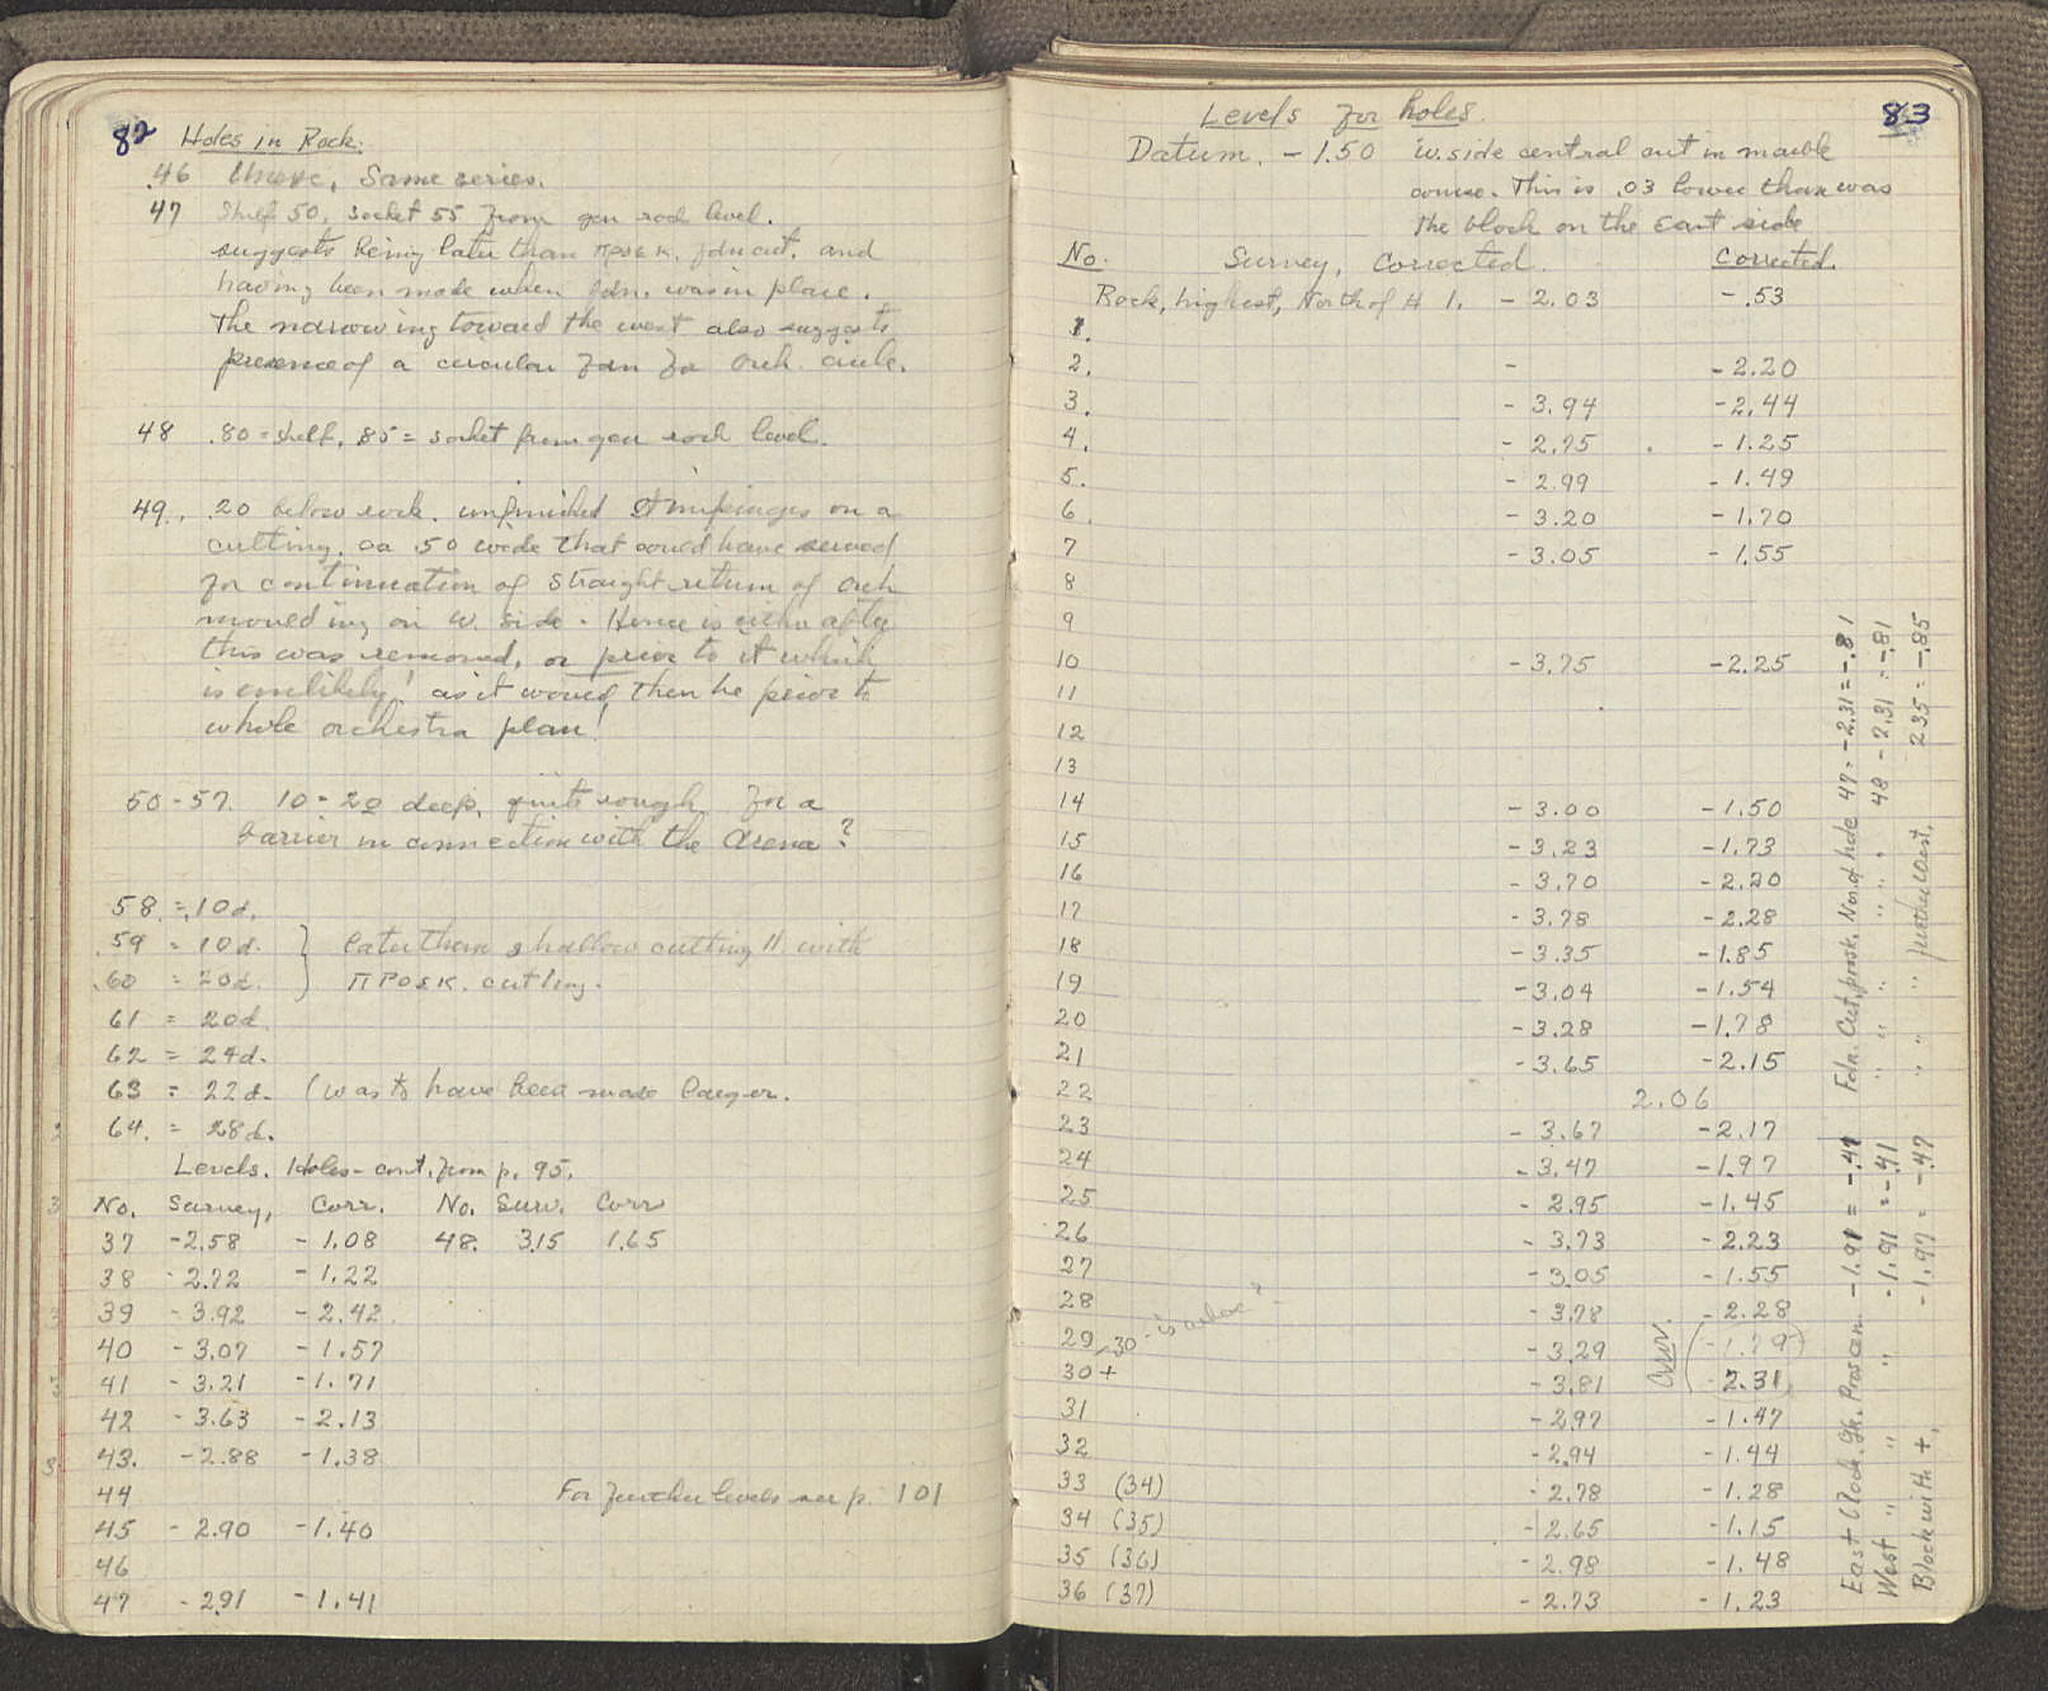 82 Holes in Rock.
46 Same series.
47 Shelf 50, socket 55 from gen rock level.
suggests being later than προσκ. fdn cut. and
having been made when fdn. was in place.
The narrowing toward the west also suggests
presence of a circular fdn for orch. circle.
48 .80 = shelf, .85 = socket from gen rock level.
49. .20 below rock. unfinished & impinges on a
cutting, ca .50 wide that could have served
for continuation of straight return of orch
moulding on W. side. Hence is either after
this was removed, or prior to it which
is unlikely! as it would then be prior to
whole orchestra plan!
50-57. 10-20 deep, quite rough for a
barrier in connection with the Arena?
58 = .10d.
.59 = 10d. } later than shallow cutting 11 with
.60 = 20d. } προσκ. cutting.
61 = 20d.
62 = 24d.
63 = 22d. (was to have been made larger.
64. = 28d.
Levels. Holes - cont. from p. 95.
No. Survey, Corr. No. Surv. Corr
37 -2.58 -1.08 48. 3.15 1.65
38 -2.72 -1.22
39 -3.92 -2.42
40 -3.07 -1.57
41 -3.21 -1.71
42 -3.63 -2.13
43. -2.88 -1.38
44 For further levels see p. 101
45 -2.90 -1.40
46
47 -2.91 -1.41
83
Levels for holes.
Datum. -1.50 W. side central cut in marble
course. This is .03 lower than was
the block on the East side
No. Survey, Corrected. Corrected.
Rock, highest, North of H 1. -2.03 -.53
1.
2. - -2.20
3. -3.94 -2.44
4. -2.75 -1.25
5. -2.99 -1.49
6. -3.20 -1.70
7 -3.05 -1.55
8
9
10 -3.75 -2.25
11
12
13
14 -3.00 -1.50
15 -3.23 -1.73
16 -3.70 -2.20
17 -3.78 -2.28
18 -3.35 -1.85
19 -3.04 -1.54
20 -3.28 -1.78
21 -3.65 -2.15
22 2.06
23 -3.67 -2.17
24 -3.47 -1.97
25 -2.95 -1.45
26 -3.73 -2.23
27 -3.05 -1.55
28 -3.78 -2.28
29, 30 -3.29 (-1.79)
30+ -3.81 -2.31
31 -2.97 -1.47
32 -2.94 -1.44
33 (34) -2.78 -1.28
34 (35) -2.65 -1.15
35 (36) -2.98 -1.48
36 (37) -2.73 -1.23
East Block. Gk. Proscen. -1.91 = -.41 Fdn. Cut, prosk. Nor. of hole 47 = -2.31 = -.81
West " " " -1.91 = -.41 " " " " 48 -2.31 = -.81
Block with +, -1.97 = -.47 " " " further West. 2.35 = -.85